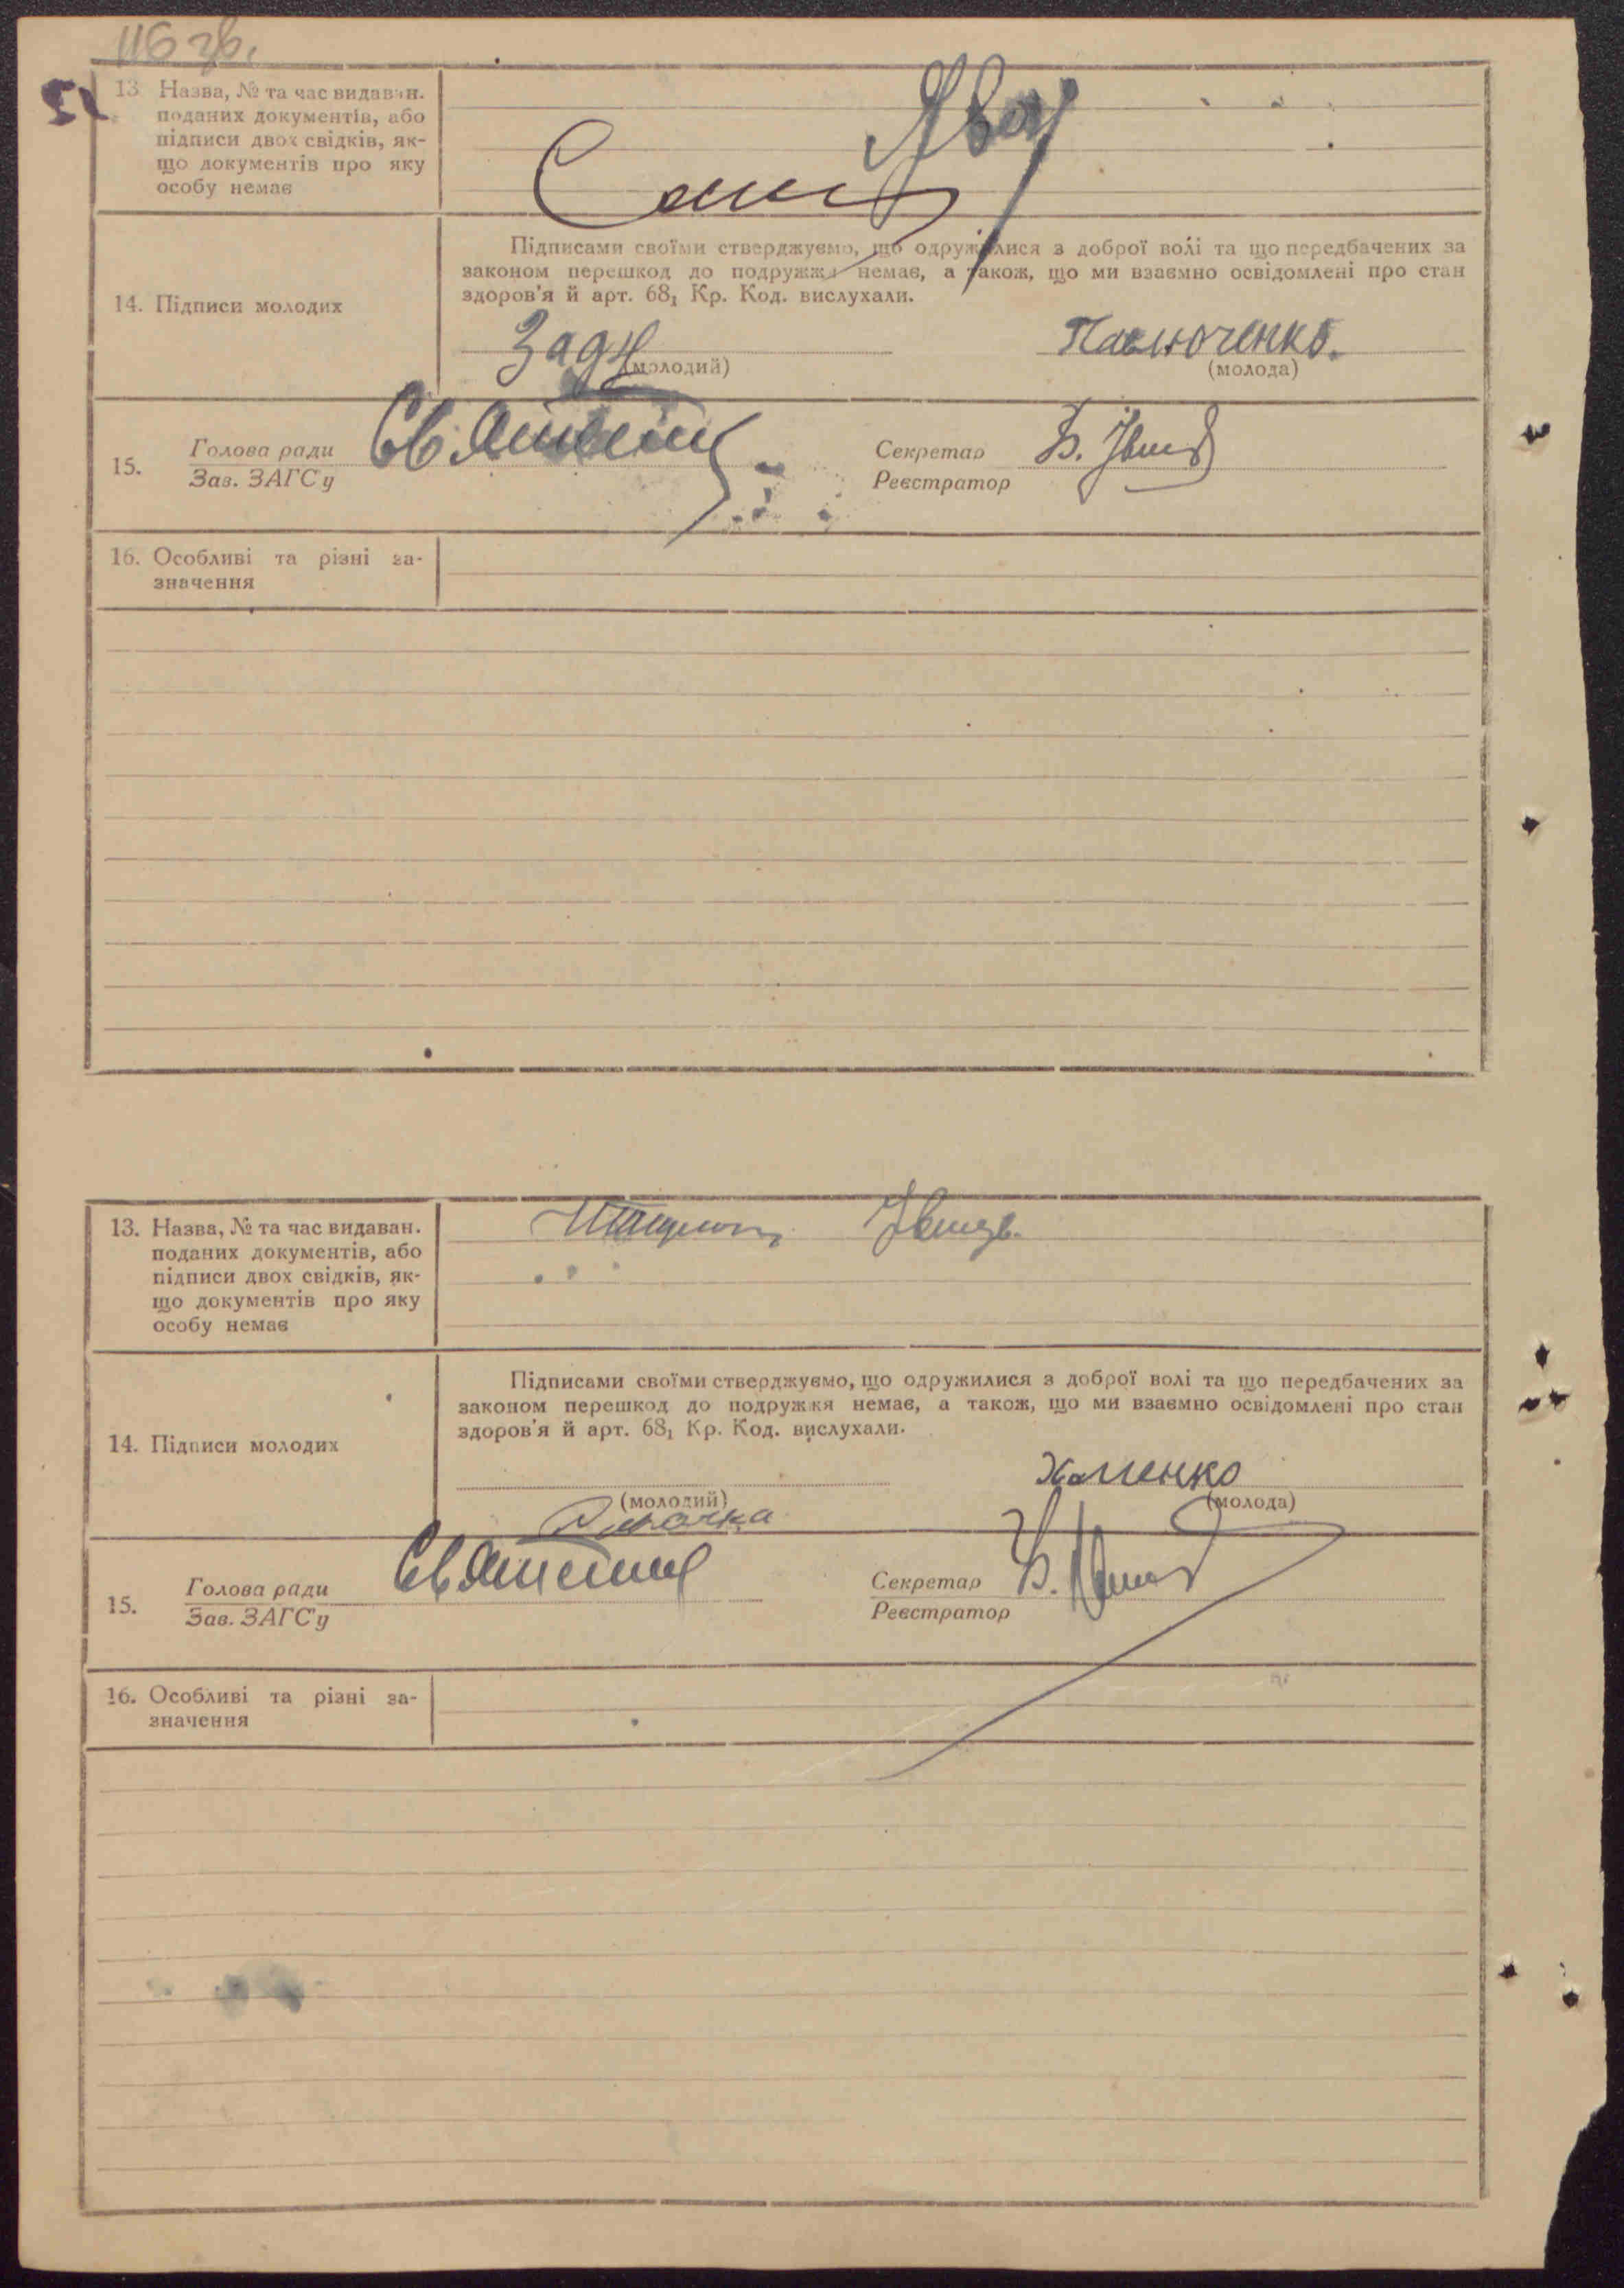 116 зв.
13. Назва, № та час видаван.
поданих документів, або
підписи двох свідків, як-
що документів про яку
особу немає
Підписами своїми стверджуємо, що одружилися з доброї волі та що передбачених за
законом перешкод до подружжя немає, а також, що ми взаємно освідомлені про стан
здоров'я й арт. 68₁ Кр. Код. вислухали.
14. Підписи молодих
Павлюченко.
(молодий)
(молода)
15.
Голова ради
Зав. ЗАГС'у
Секретар
Реєстратор
16. Особливі та різні за-
значення
13. Назва, № та час видаван.
поданих документів, або
підписи двох свідків, як-
що документів про яку
особу немає
Підписами своїми стверджуємо, що одружилися з доброї волі та що передбачених за
законом перешкод до подружжя немає, а також, що ми взаємно освідомлені про стан
здоров'я й арт. 68₁ Кр. Код. вислухали.
14. Підписи молодих
Хоменко
(молодий)
(молода)
15.
Голова ради
Зав. ЗАГС'у
Секретар
Реєстратор
16. Особливі та різні за-
значення